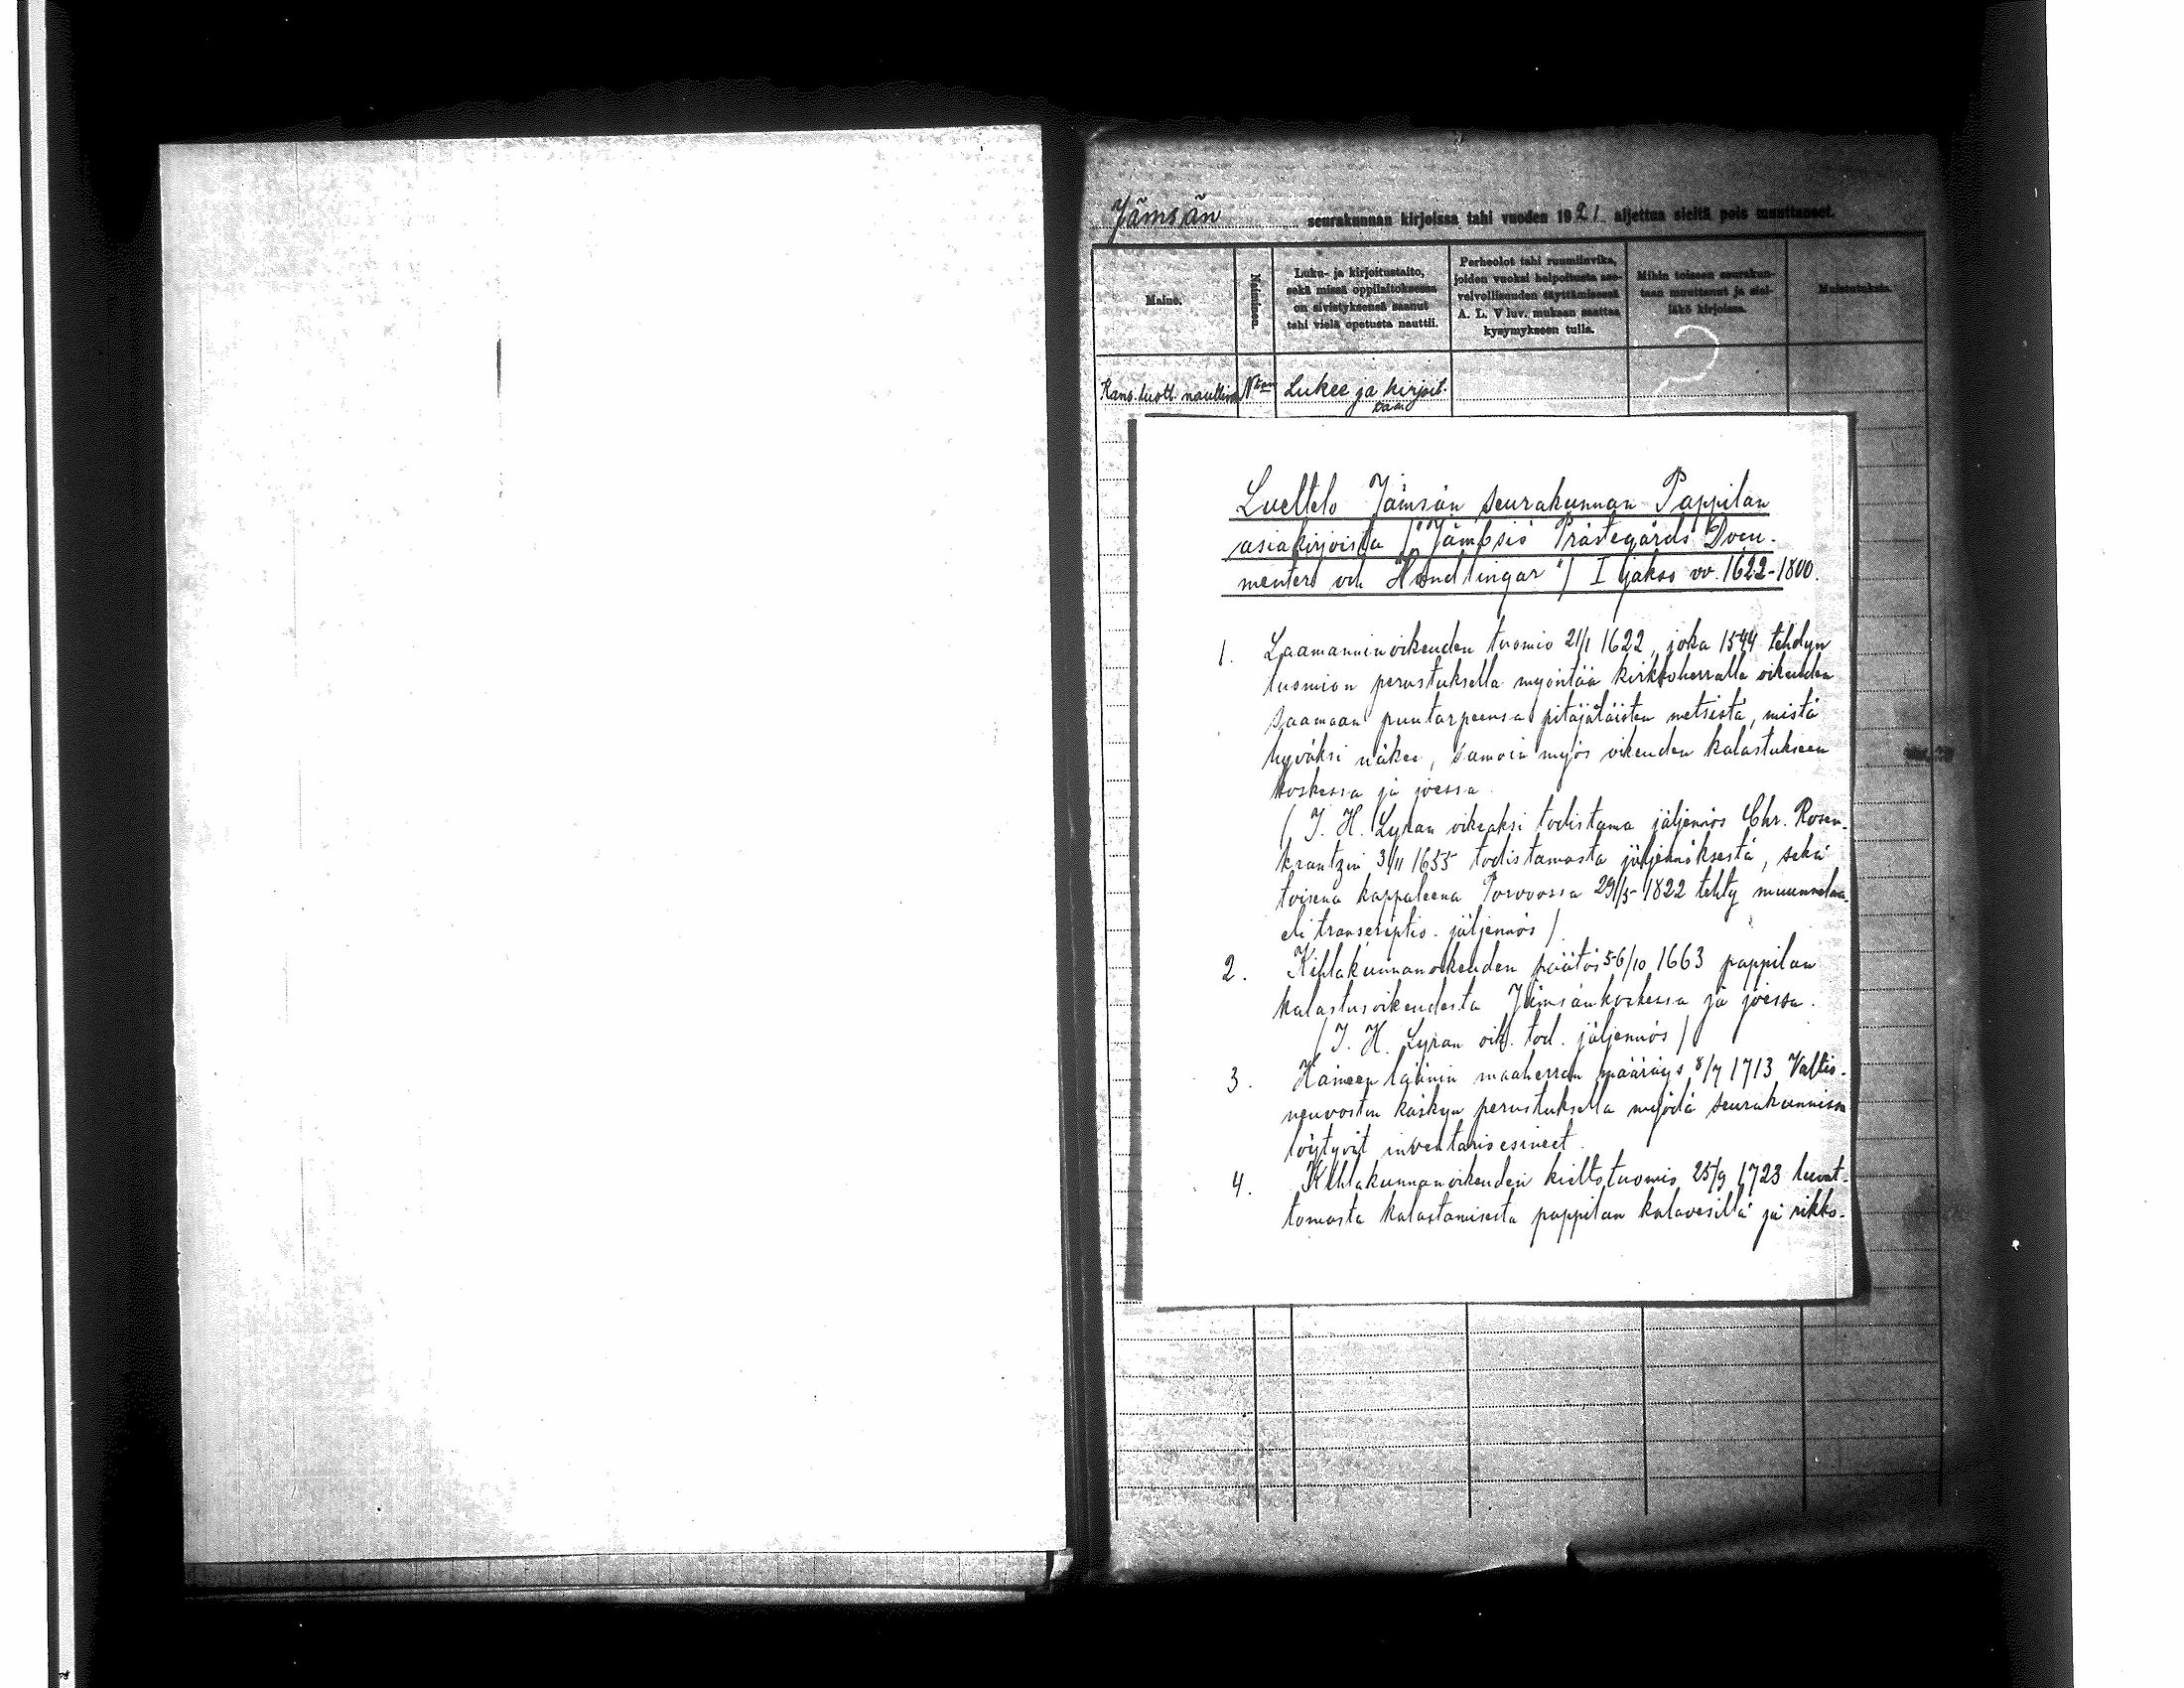 Jämsän seurakunnan kirjoissa tahi vuoden 1921 aljettua sieltä pois muuttaneet.
Maine.
Naiminen.
Luku- ja kirjoitustaito,
sekä missä oppilaitoksessa
on sivistyksensä saanut
tahi vielä opetusta nauttii.
Perheolot tahi ruumiinvika,
joiden vuoksi helpoitusta ase-
velvollisuuden täyttämisessä
A. L. V luv. mukaan saattaa
kysymykseen tulla.
Mihin toiseen seurakun-
taan muuttanut ja siel-
läkö kirjoissa.
Muistutuksia.
Kans. luott. nauttiva
Lukee ja kirjoit.
Luettelo Jämsän seurakunnan Pappilan
asiakirjoista /"Jämbsiö Prästegårds Docu-
menter och Handlingar"/ I jakso vv. 1622-1800.
1. Laamanninoikeuden tuomio 21/1 1622, joka 1544 tehdyn
tuomion perustuksella myöntää kirkkoherralle oikeuden
saamaan puutarpeensa pitäjäläisten metsistä, mistä
hyväksi näkee, samoin myös oikeuden kalastukseen
koskessa ja joessa.
/ J. H. Lyran oikeaksi todistama jäljennös Chr. Rosen-
krantzin 3/11 1655 todistamasta jäljennöksestä, sekä
toisena kappaleena Porvoossa 29/5 1822 tehty muunnelma-
eli transcriptio-jäljennös /
2. Kihlakunnanoikeuden päätös 5-6/10 1663 pappilan
kalastusoikeudesta Jämsänkoskessa ja joessa.
/ J. H. Lyran oik. tod. jäljennös /
3. Hämeen läänin maaherran määräys 8/7 1713 Valtio-
neuvoston käskyn perustuksella myödä seurakunnissa
löytyvät inventarioesineet.
4. Kihlakunnanoikeuden kieltotuomio 25/9 1723 luvat-
tomasta kalastamisesta pappilan kalavesillä ja rikko-